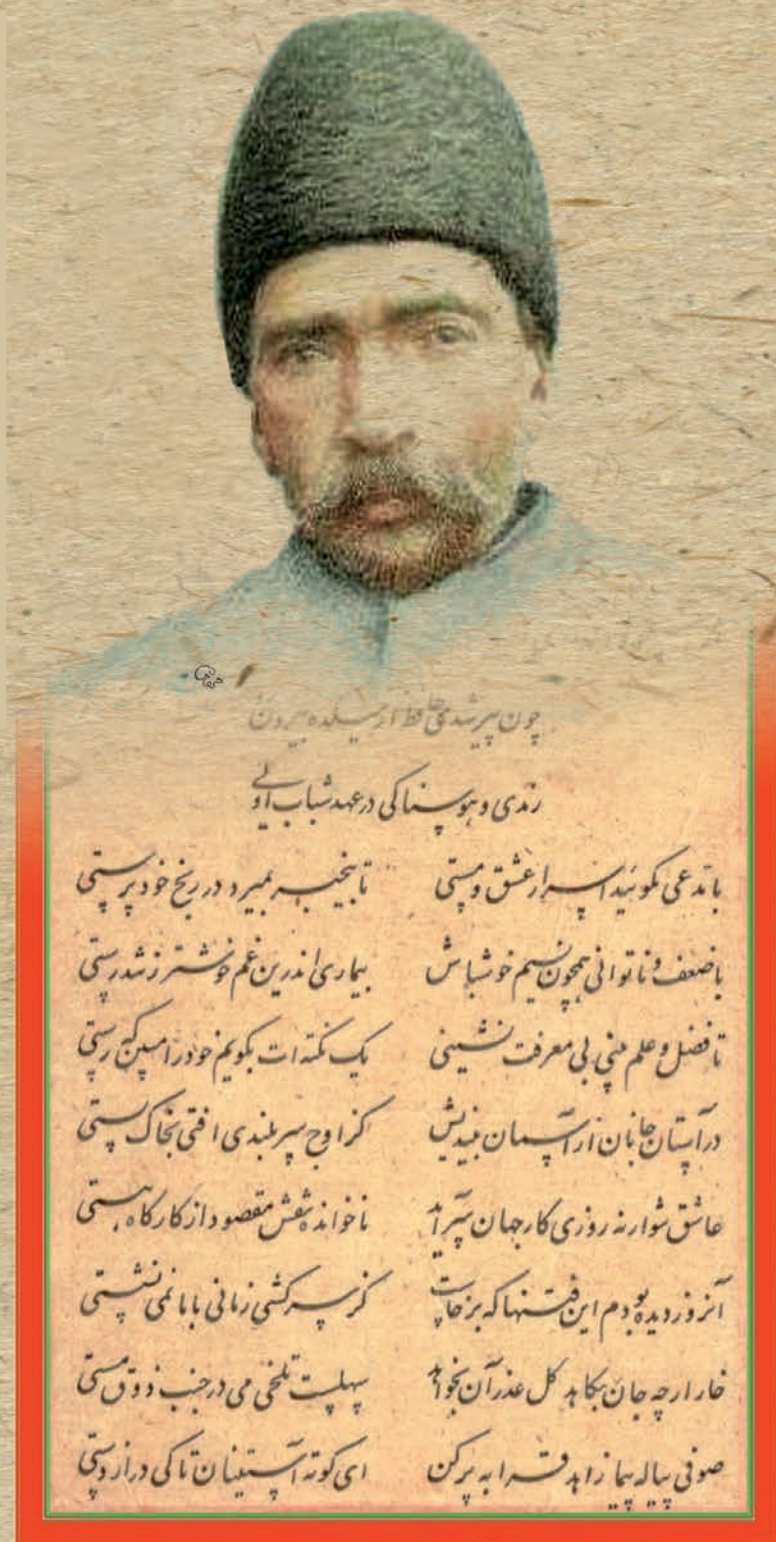 چون پیر شدی حافظ از میکده بیرون
رندی و هوسناکی در عهد شباب اولی
با مدعی مگوئید اسرار عشق و مستی تا بیخبر بمیرد در رنج خود پرستی
با ضعف و ناتوانی همچون نسیم خوشباش بیماری اندرین غم خوشتر ز تندرستی
تا فضل و علم بینی بی معرفت نشینی یک نکته ات بگویم خود را مبین که رستی
در آستان جانان از آسمان میندیش کز اوج سربلندی افتی بخاک پستی
عاشق شو ار نه روزی کار جهان سرآید ناخوانده نقش مقصود از کارگاه هستی
آنروز دیده بودم این فتنها که برخاست کز سرکشی زمانی با ما نمی نشستی
خار ارچه جان بکاهد گل عذر آن بخواهد سهلست تلخی می در جنب ذوق مستی
صوفی پیاله پیما زاهد قرابه پرکن ای کوته آستینان تا کی دراز دستی